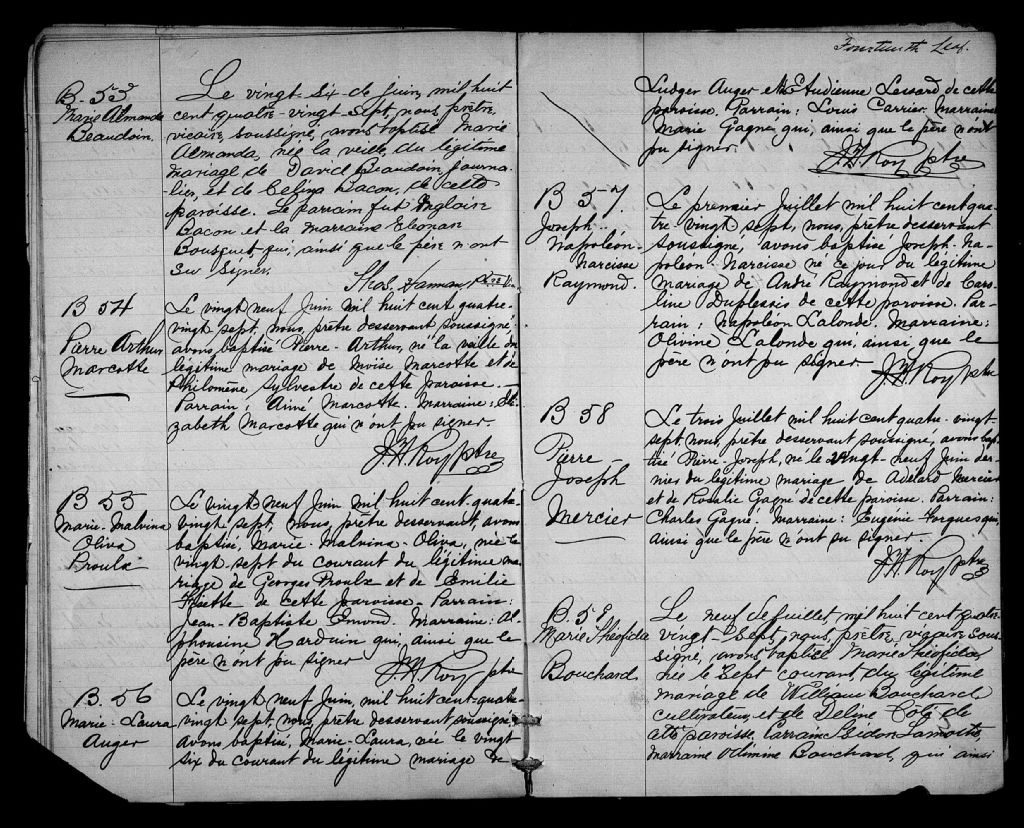 B. 53
Marie Almanda
Beaudoin.
Le vingt-six de juin, mil huit
cent quatre-vingt-sept, nous, prêtre,
vicaire, soussigné, avons baptisé Marie
Almanda, née la veille, du légitime
mariage de David Beaudoin journa-
lier, et de Celina Bacon, de cette
paroisse. Le parrain fut
Bacon et la marraine Eléonore
Bousquet, qui, ainsi que le père n'ont
su signer.
Thos.
B 54
Pierre Arthur
Marcotte
Le vingt neuf Juin mil huit cent quatre-
vingt sept, nous, prêtre desservant soussigné,
avons baptisé Pierre-Arthur, né la veille du
légitime mariage de Moïse Marcotte et de
Philomène Sylvestre de cette paroisse.
Parrain; Aimé Marcotte. Marraine: Eli-
zabeth Marcotte qui n'ont pu signer.
J.H. Roy ptre
B 55
Marie-Malvina
Oliva
Proulx
Le vingt neuf Juin mil huit cent-quatre
vingt sept, nous, prêtre desservant, avons
baptisé, Marie-Malvina-Oliva, née le
vingt-sept du courant du légitime ma-
riage de Georges Proulx et de Emilie
Fisette de cette paroisse. Parrain:
Jean-Baptiste Emond. Marraine: Al-
phonsine Harduin qui, ainsi que le
père n'ont pu signer
J.H. Roy ptre
B. 56
Marie-Laura
Auger
Le vingt neuf Juin, mil huit cent-quatre
vingt sept, nous, prêtre desservant soussigné,
avons baptisé, Marie-Laura, née le vingt
six du courant du légitime mariage de
Fourteenth Leaf.
Ludger Auger et Lessard de cette
paroisse. Parrain: Louis Carrier. Marraine
Marie Gagné, qui, ainsi que le père n'ont
pu signer.
J.H. Roy ptre
B 57
Joseph
Napoléon
Narcisse
Raymond.
Le premier Juillet mil huit cent qua-
tre-vingt sept, nous, prêtre desservant
soussigné, avons baptisé Joseph-Na-
poléon-Narcisse né ce jour du légitime
mariage de André Raymond et de Caro-
line Duplessis de cette paroisse. Par-
rain; Napoléon Lalonde. Marraine:
Olivine Lalonde qui, ainsi que le
père n'ont pu signer.
J.H. Roy ptre
B 58
Pierre
Joseph
Mercier
Le trois Juillet mil huit cent quatre-vingt-
sept, nous, prêtre desservant soussigné, avons bap-
tisé Pierre-Joseph, né le vingt-neuf Juin der-
nier du légitime mariage de Adélard Mercier
et de Rosalie Gagné de cette paroisse. Parrain:
Charles Gagné. Marraine: Eugénie qui,
ainsi que le père n'ont su signer.
J.H. Roy ptre
B. 59
Marie Théofida
Bouchard
Le neuf de juillet, mil huit cent quatre
vingt-sept, nous, prêtre, vicaire sous-
signé, avons baptisé Marie Théofida,
née le sept courant, du légitime
mariage de William Bouchard
cultivateur, et de Deline Coté de
cette paroisse. Parrain Lamothe
marraine Odimine Bouchard, qui ainsi